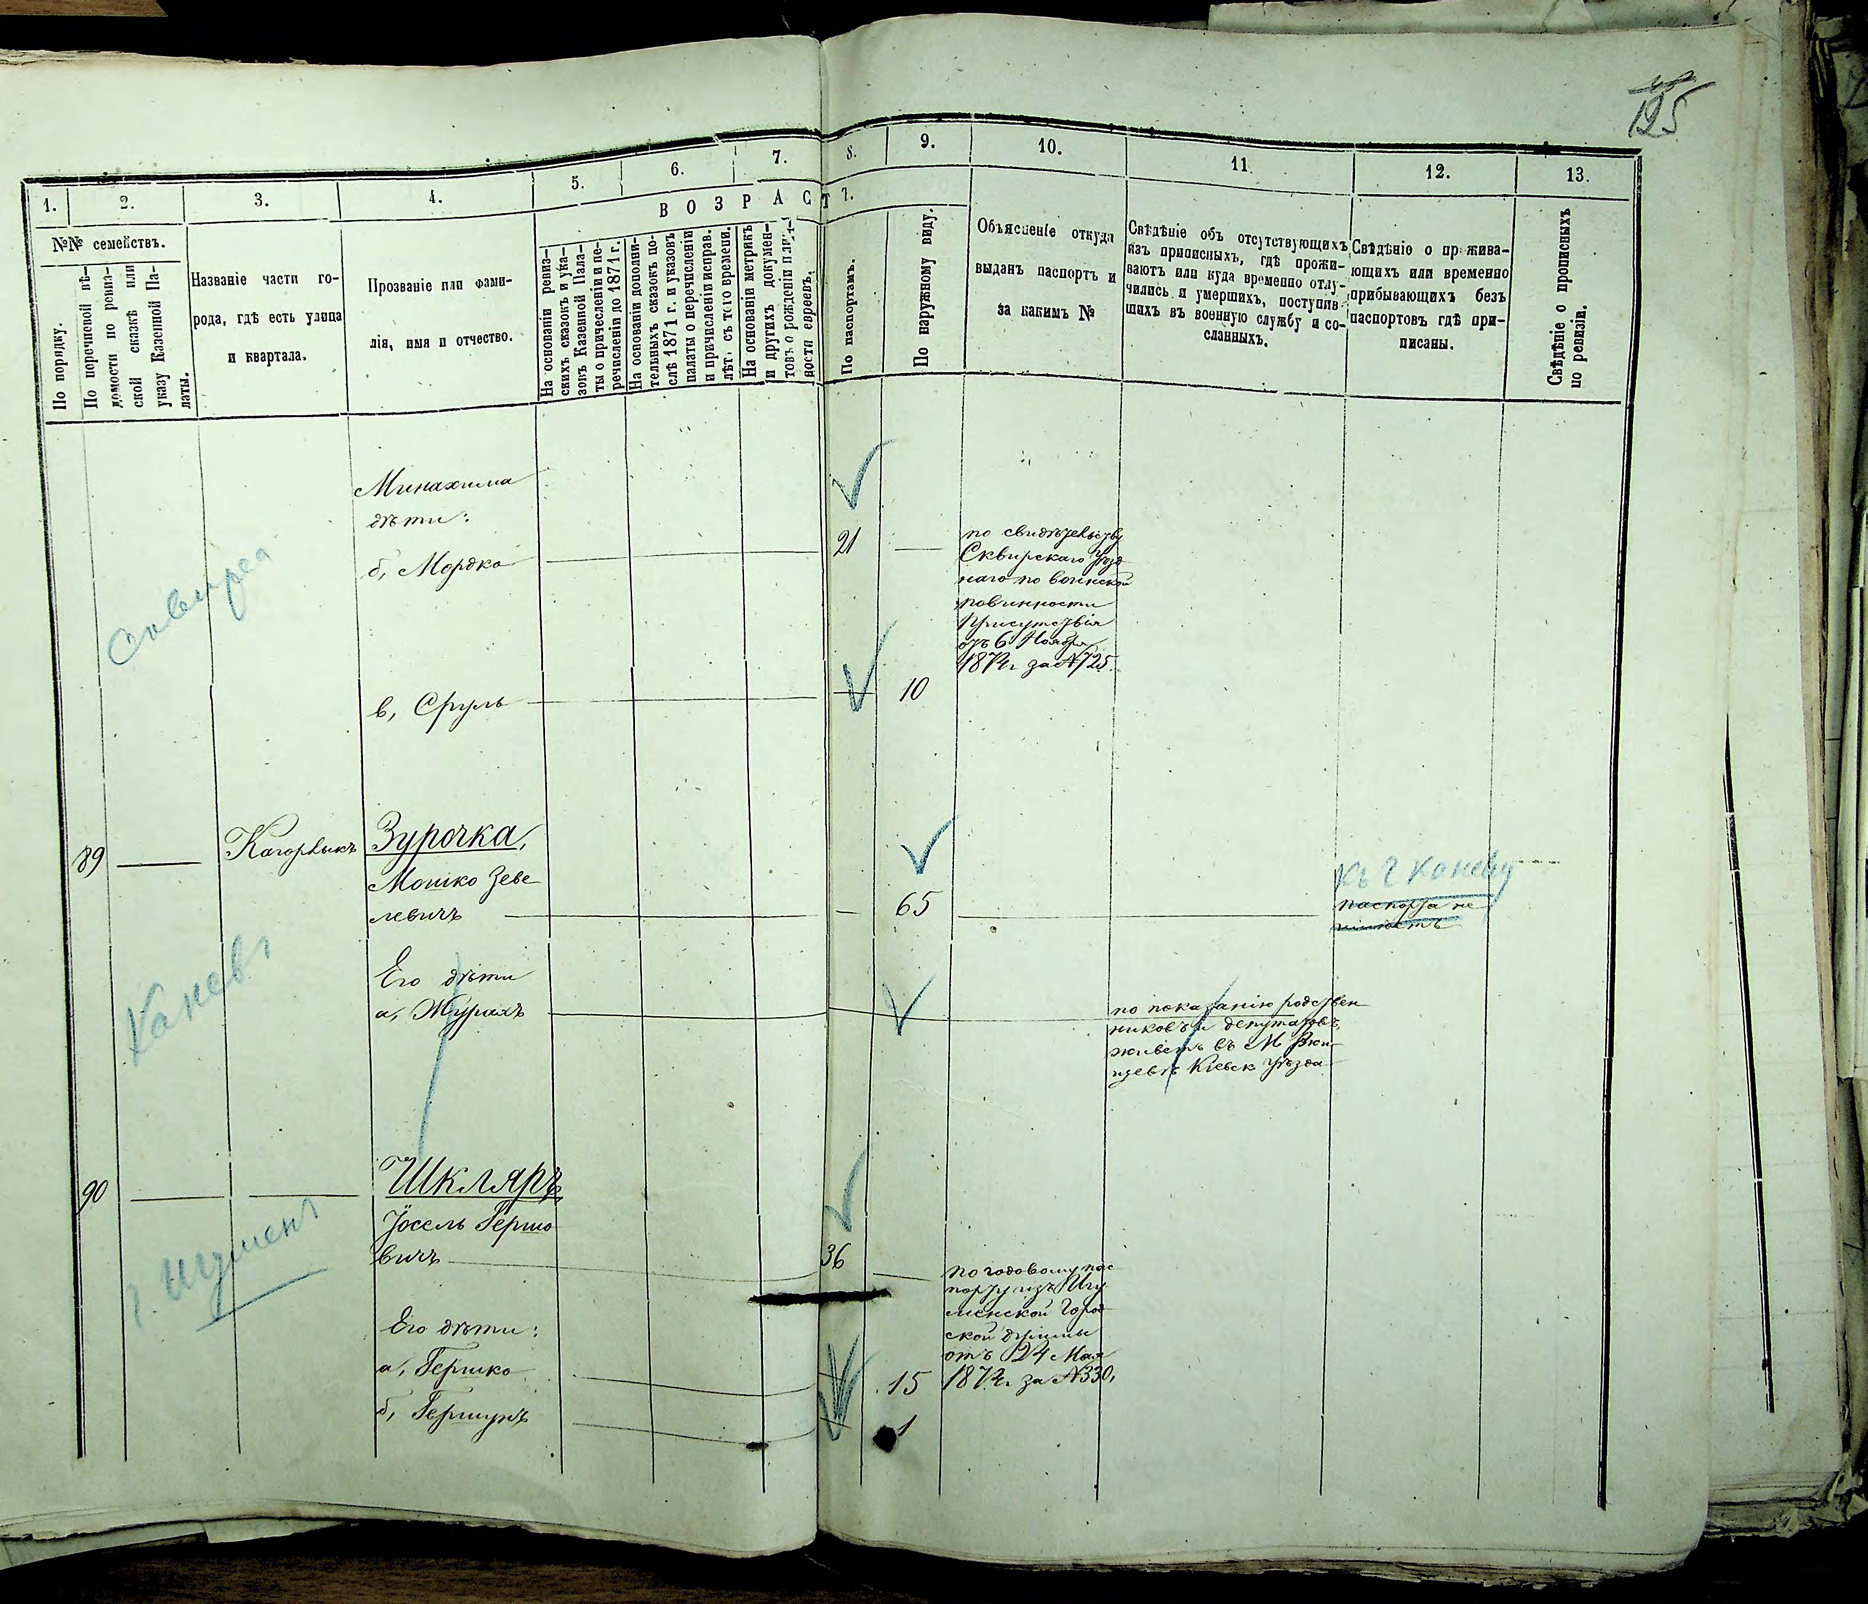 125
1.
2.
3.
4.
5.
6.
7.
8.
9.
10.
11
12.
13.
№№ семействъ.
По порядку.
По перечневой вѣ-
домости по ревиз-
ской сказкѣ или
указу Казенной Па-
латы.
Названіе части го-
рода, гдѣ есть улица
и квартала.
Прозваніе или фами-
лія, имя и отчество.
ВОЗРАСТ
На основаніи ревиз-
скихъ сказокъ и ука-
зокъ Казенной Пала-
ты о причисленіи и пе-
речисленіи до 1871 г.
На основаніи дополни-
тельныхъ сказокъ по-
слѣ 1871 г. и указовъ
палаты о перечисленіи
и причисленіи исправ.
лѣт. съ того времени.
На основаніи метрикъ
и другихъ докумен-
товъ о рожденіи
ности евреевъ.
По паспортамъ.
По наружному виду.
Объясненіе откуда
выданъ паспортъ и
за какимъ №
Свѣдѣніе объ отсутствующихъ
изъ приписныхъ, гдѣ прожи-
ваютъ или куда временно отлу-
чились и умершихъ, поступив-
шихъ въ военную службу и со-
сланныхъ.
Свѣдѣніе о прожива-
ющихъ или временно
прибывающихъ безъ
паспортовъ гдѣ при-
писаны.
Свѣдѣніе о прописныхъ
по ревизіи.
Минахима
дѣти:
б, Мордко
21
по свидѣтельству
Сквирскаго Уѣзд
наго по воинской
повинности
Присутствія
отъ 6 Ноября
187 г за № 725.
в, Сруль
10
89
Кагорлыкъ
Зурочка,
Мошко Зеве
левичъ
65
къ г Каневу
паспорта не
имѣетъ
Каневъ
Его дѣти
а,
по показанію родствен
никовъ и депутатовъ,
живетъ въ М Ржи
щевѣ Кіевск Уѣзда
90
Шкляръ
Іосель Гершо
вичъ
36
г. Игумень
по годовому пас
порту изъ Игу
менской Город
ской думы
отъ 24 Мая
187 г за № 330,
Его дѣти:
а, Гершко
15
б, Гершунъ
1